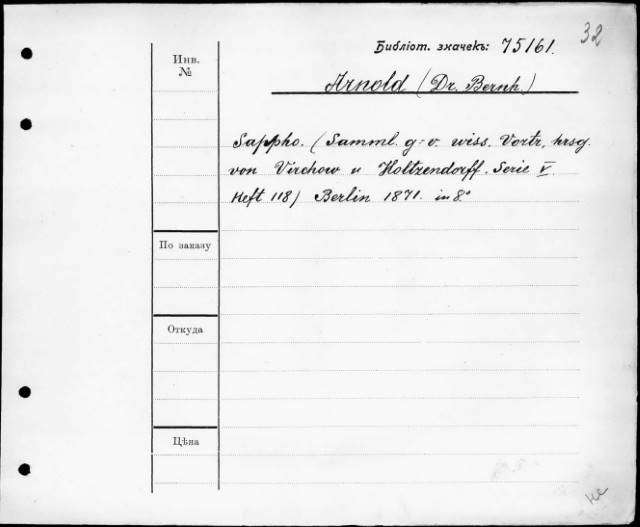 32
Библіот. значекъ: 75161.
Инв.
№
Arnold (Dr. Bernh.)
Sappho. (Samml. g=v. wiss. Vortr. hrsg.
von Virchow u Holtzendorff. Serie V.
Heft 118) Berlin 1871. in 8.°
По заказу
Откуда
Цѣна
не